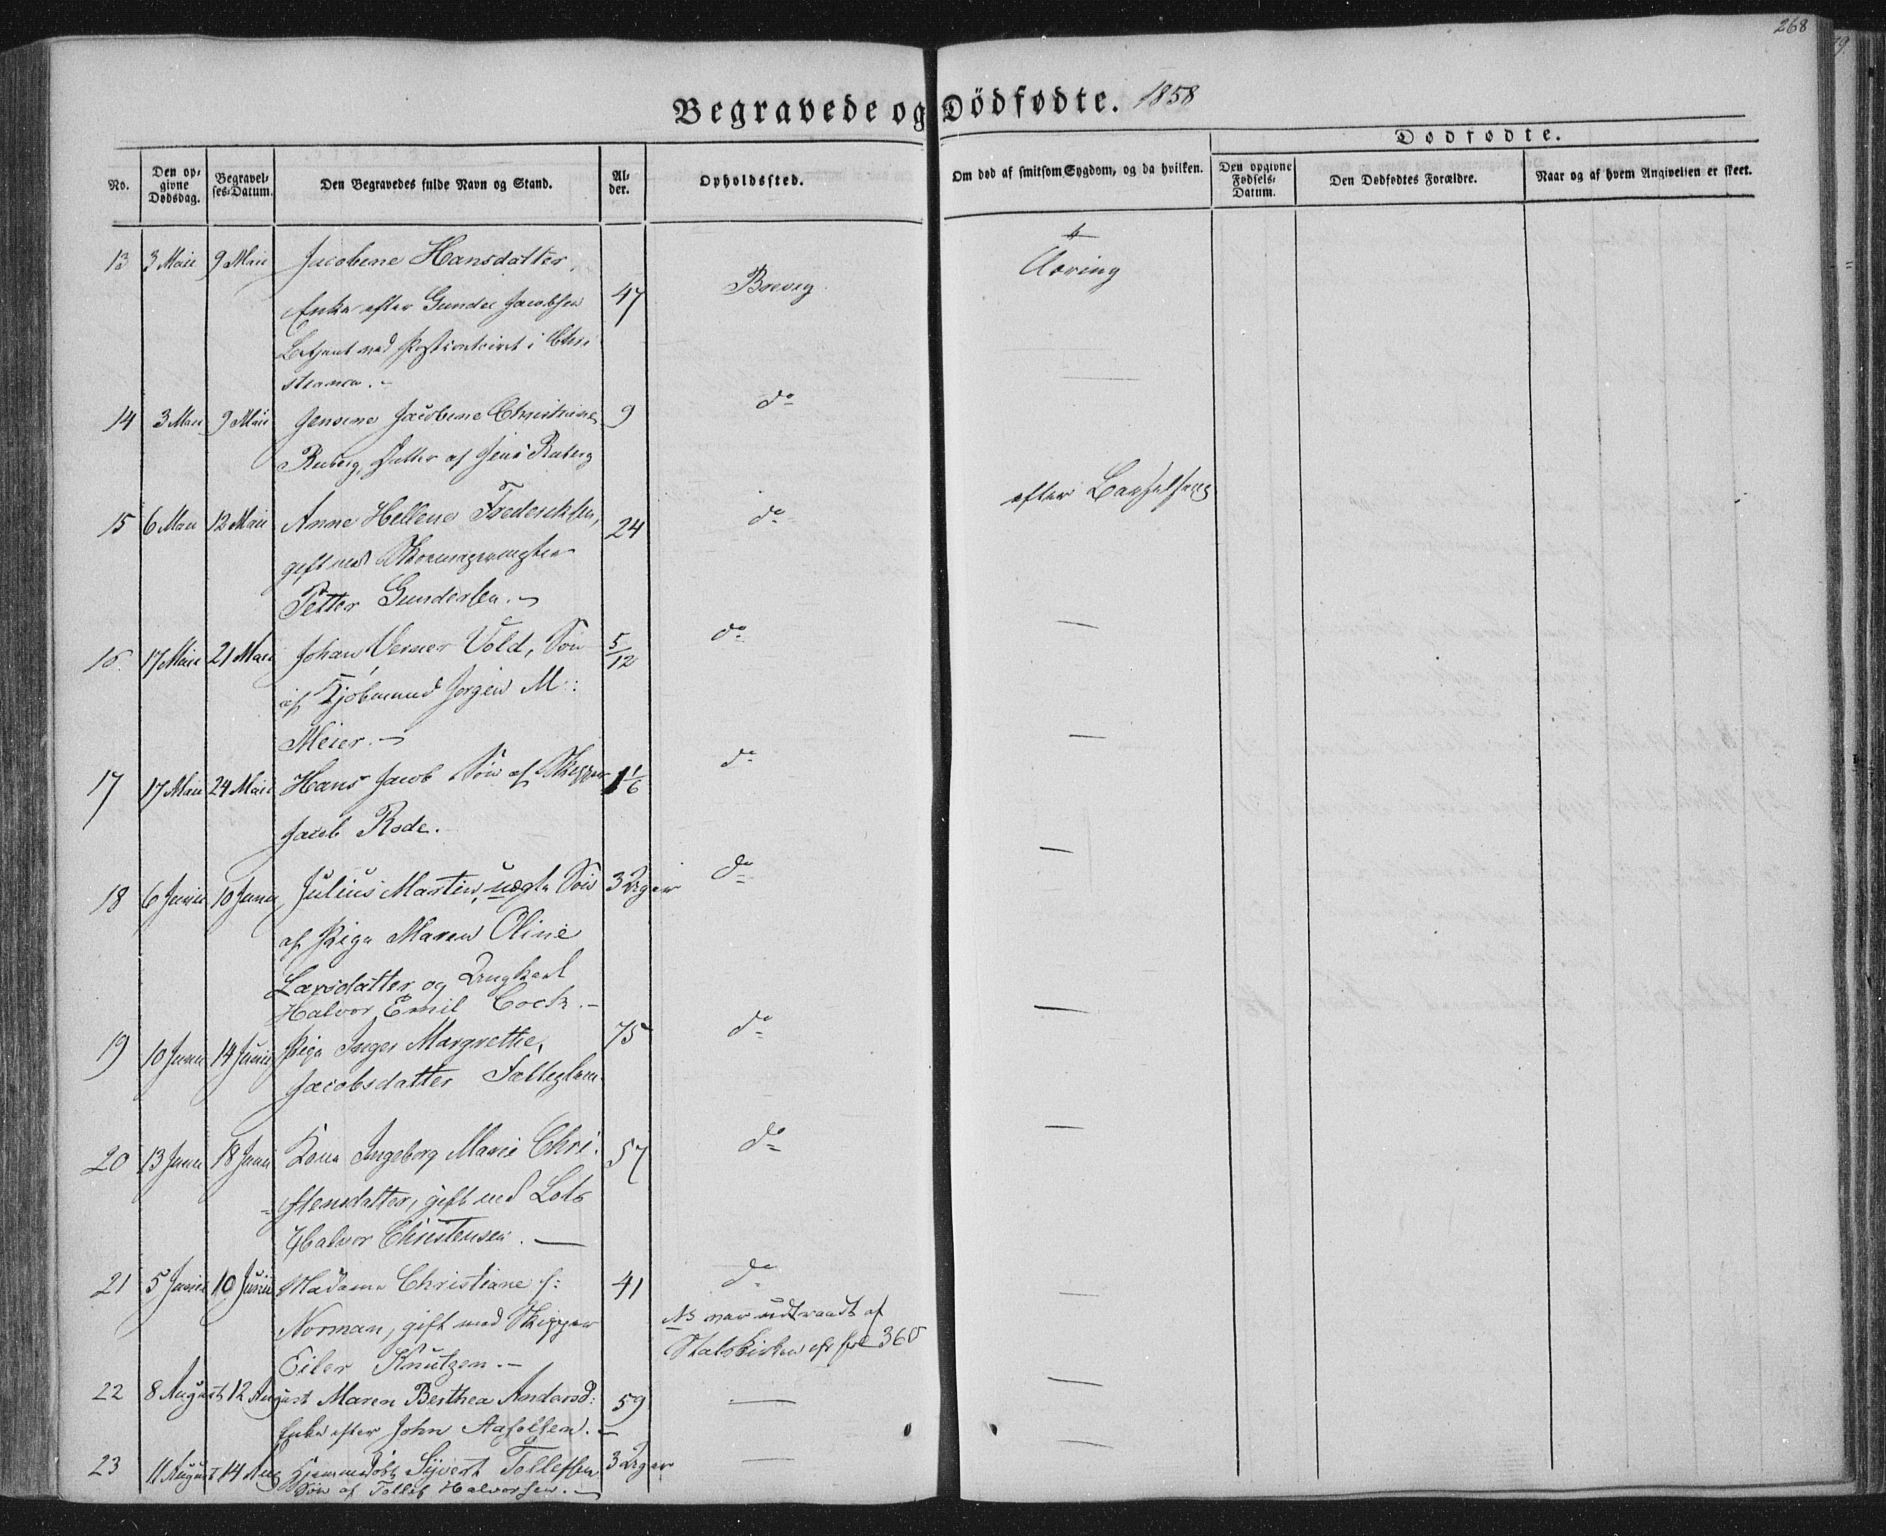 268
Begravede og Dödfødte. 1858
Dødfødte.
No.
Den op-
givne
Dødsdag.
Begravel-
ses-Datum.
Den Begravedes fulde Navn og Stand.
Al-
der.
Opholdssted.
Om død af smitsom Sygdom, og da hvilken.
Den opgivne
Fødsels-
Datum.
Den Dødfødtes Forældre.
Naar og af hvem Angivelsen er skeet.
13 3 Maii 9 Maii Jacobine Hansdatter,
Enke efter Gunder Jacobsen 47 Brevig
Betjent ved Postcontoiret i Chri
stiania. -
14 3 Maii 9 Maii Jensine Jacobine Christiane 9 do
Ruberg, Datter af Jens Ruberg
15 6 Maii 12 Maii Anne Hellene Frederiksen, 24 do efter Barselseng
gift med
Petter Gundersen. -
16 17 Maii 21 Maii Johan Verner Vold, Søn 5/12 do —
af Kjøbmand Jørgen M:
Meier. -
17 17 Maii 24 Maii Hans Jacob Søn af Skipper 1 1/6 do —
Jacob Rode.
18 6 Junii 10 Junii Julius Martin, uægte Søn 3 Uger do —
af Pige Maren Oline
Larsdatter og Ungkarl
Halvor Emil Cock. -
19 10 Junii 14 Junii Pige Inger Margrethe, 75 do —
Jacobsdatter
20 13 Junii 18 Junii Kone Ingeborg Marie Chri- 57 do —
stensdatter, gift med Lots
Halvor Christensen. —
21 5 Junii 10 Junii Madame Christiane f: 41 do —
Norman, gift med Skipper
Eiler Knutzen. -
NB var udtraadt af
Statskirken cfr fol 360
22 8 August 12 August Maren Berthea Andersd: 59 — —
Enke efter John
23 11 August 14 Aug Hjemmedøbt Syvert Tollefsen 3 Uger — —
Søn af Tollef Halvorsen. -